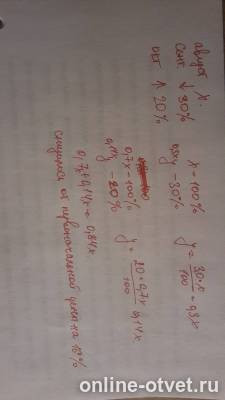 август x.
сент ↓ 30%
окт ↑ 20%
x = 100%
y - 30%
y = 30·x/100 = 0,3x
0,7x = 100%
y - 20%
y = 20·0,7x/100 0,14x
0,7x + 0,14x = 0,84x
снизилась от первоначальной цены на 16%
online-otvet.ru